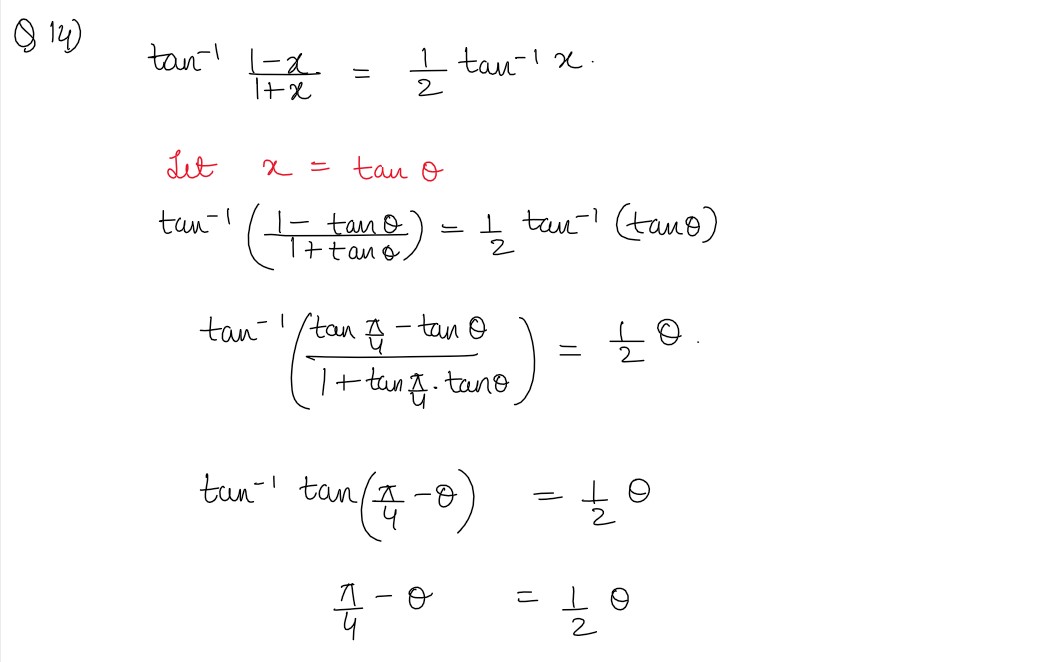 Q 14) tan⁻¹ (1-x)/(1+x) = 1/2 tan⁻¹ x.
Let x = tan θ
tan⁻¹ ((1 - tan θ)/(1 + tan θ)) = 1/2 tan⁻¹ (tan θ)
tan⁻¹ ((tan π/4 - tan θ)/(1 + tan π/4 . tan θ)) = 1/2 θ.
tan⁻¹ tan (π/4 - θ) = 1/2 θ
π/4 - θ = 1/2 θ